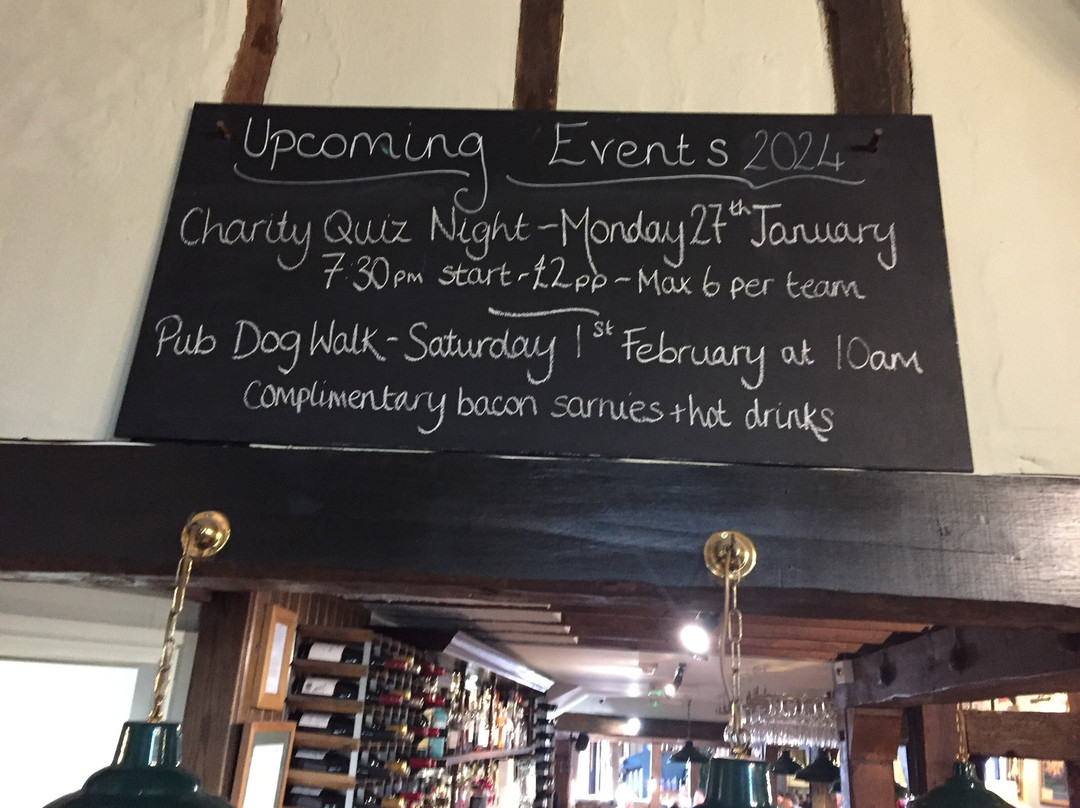 Upcoming Events 2024
Charity Quiz Night - Monday 27th January
7:30pm start - £2pp - Max 6 per team
Pub Dog Walk - Saturday 1st February at 10am
Complimentary bacon sarnies + hot drinks